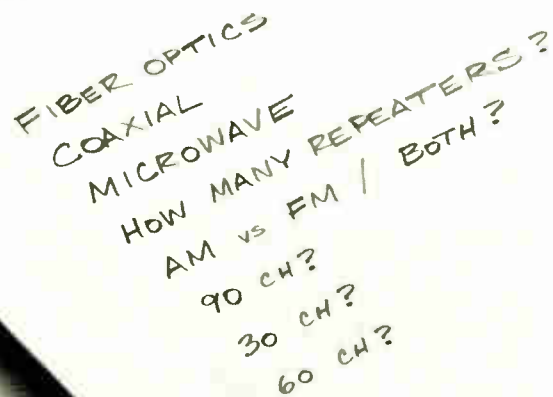 FIBER OPTICS
COAXIAL
MICROWAVE
HOW MANY REPEATERS?
AM vs FM / BOTH?
90 CH?
30 CH?
60 CH?